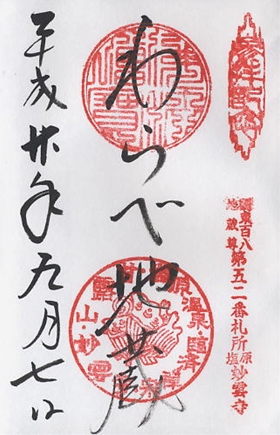 關東百八
地蔵尊
第五二番札所
塩原
妙雲寺
わらべ地蔵
原温泉・臨済
露山・妙雲
平成廿年五月七日